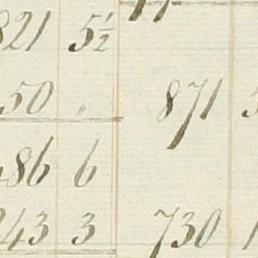 821 5½
50 , 871
486 6
243 3 730 1